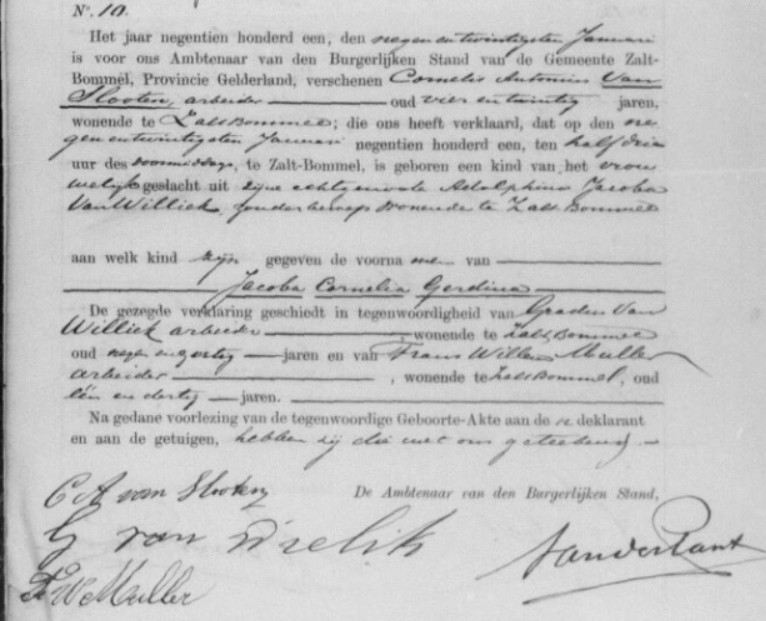 Nº. 10.
Het jaar negentien honderd een, den negen en twintigsten Januari
is voor ons Ambtenaar van den Burgerlijken Stand van de Gemeente Zalt-
Bommel, Provincie Gelderland, verschenen Cornelis Antonius Van
Slooten, arbeider oud vier en twintig jaren,
wonende te Zaltbommel; die ons heeft verklaard, dat op den ne-
gen en twintigsten Januari negentien honderd een, ten half drie
uur des voormiddags, te Zalt-Bommel, is geboren een kind van het vrou
welijk geslacht uit zijne echtgenoote Adolphina Jacoba
Van Williek, zonder beroep wonende te Zalt Bommel
aan welk kind zijn gegeven de voorna men van
Jacoba Cornelia Gerdina
De gezegde verklaring geschiedt in tegenwoordigheid van Gradus Van
Williek arbeider wonende te Zalt Bommel
oud negen en veertig jaren en van Frans Willem Muller
arbeider, wonende te Zalt Bommel, oud
één en dertig jaren.
Na gedane voorlezing van de tegenwoordige Geboorte-Akte aan de n deklarant
en aan de getuigen, hebben zij die met ons geteekend.
C A van Slooten
De Ambtenaar van den Burgerlijken Stand,
G van
F W Muller